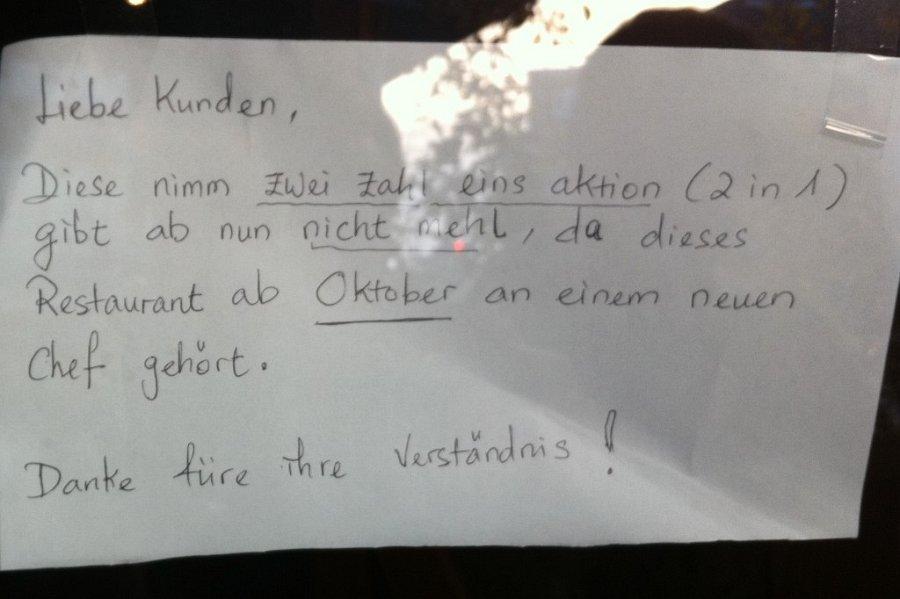 Liebe Kunden,
Diese nimm zwei zahl eins aktion (2 in 1)
gibt ab nun nicht mehl, da dieses
Restaurant ab Oktober an einem neuen
Chef gehört.
Danke füre ihre Verständnis!